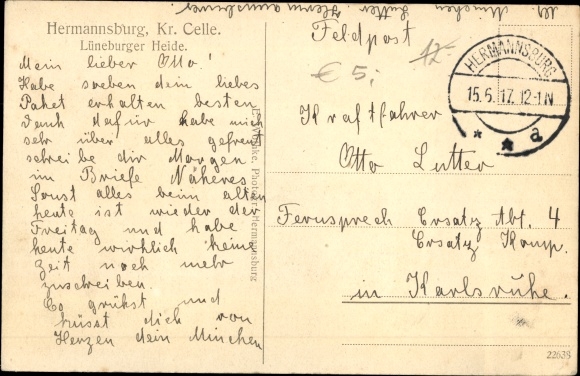 Hermannsburg, Kr. Celle.
Lüneburger Heide.
Mein lieber Otto!
Habe soeben dein liebes
Paket erhalten besten
Dank dafür habe mich
sehr über alles gefreut
schreibe dir Morgen
im Briefe Näheres
Sonst alles beim alten
heute ist wieder der
Freitag und habe
heute wirklich keine
Zeit noch mehr
zuschreiben.
Es grüßt und
küsst dich von
Herzen dein Minchen
Photogr. Hermannsburg
Minchen Lutter Hermannsburg
Feldpost
12-
€ 5,-
HERMANNSBURG
15.6.17. 12-1 N
* * a
Kraftfahrer
Otto Lutter
Fernsprech Ersatz Abt. 4
Ersatz Komp.
in Karlsruhe.
22638